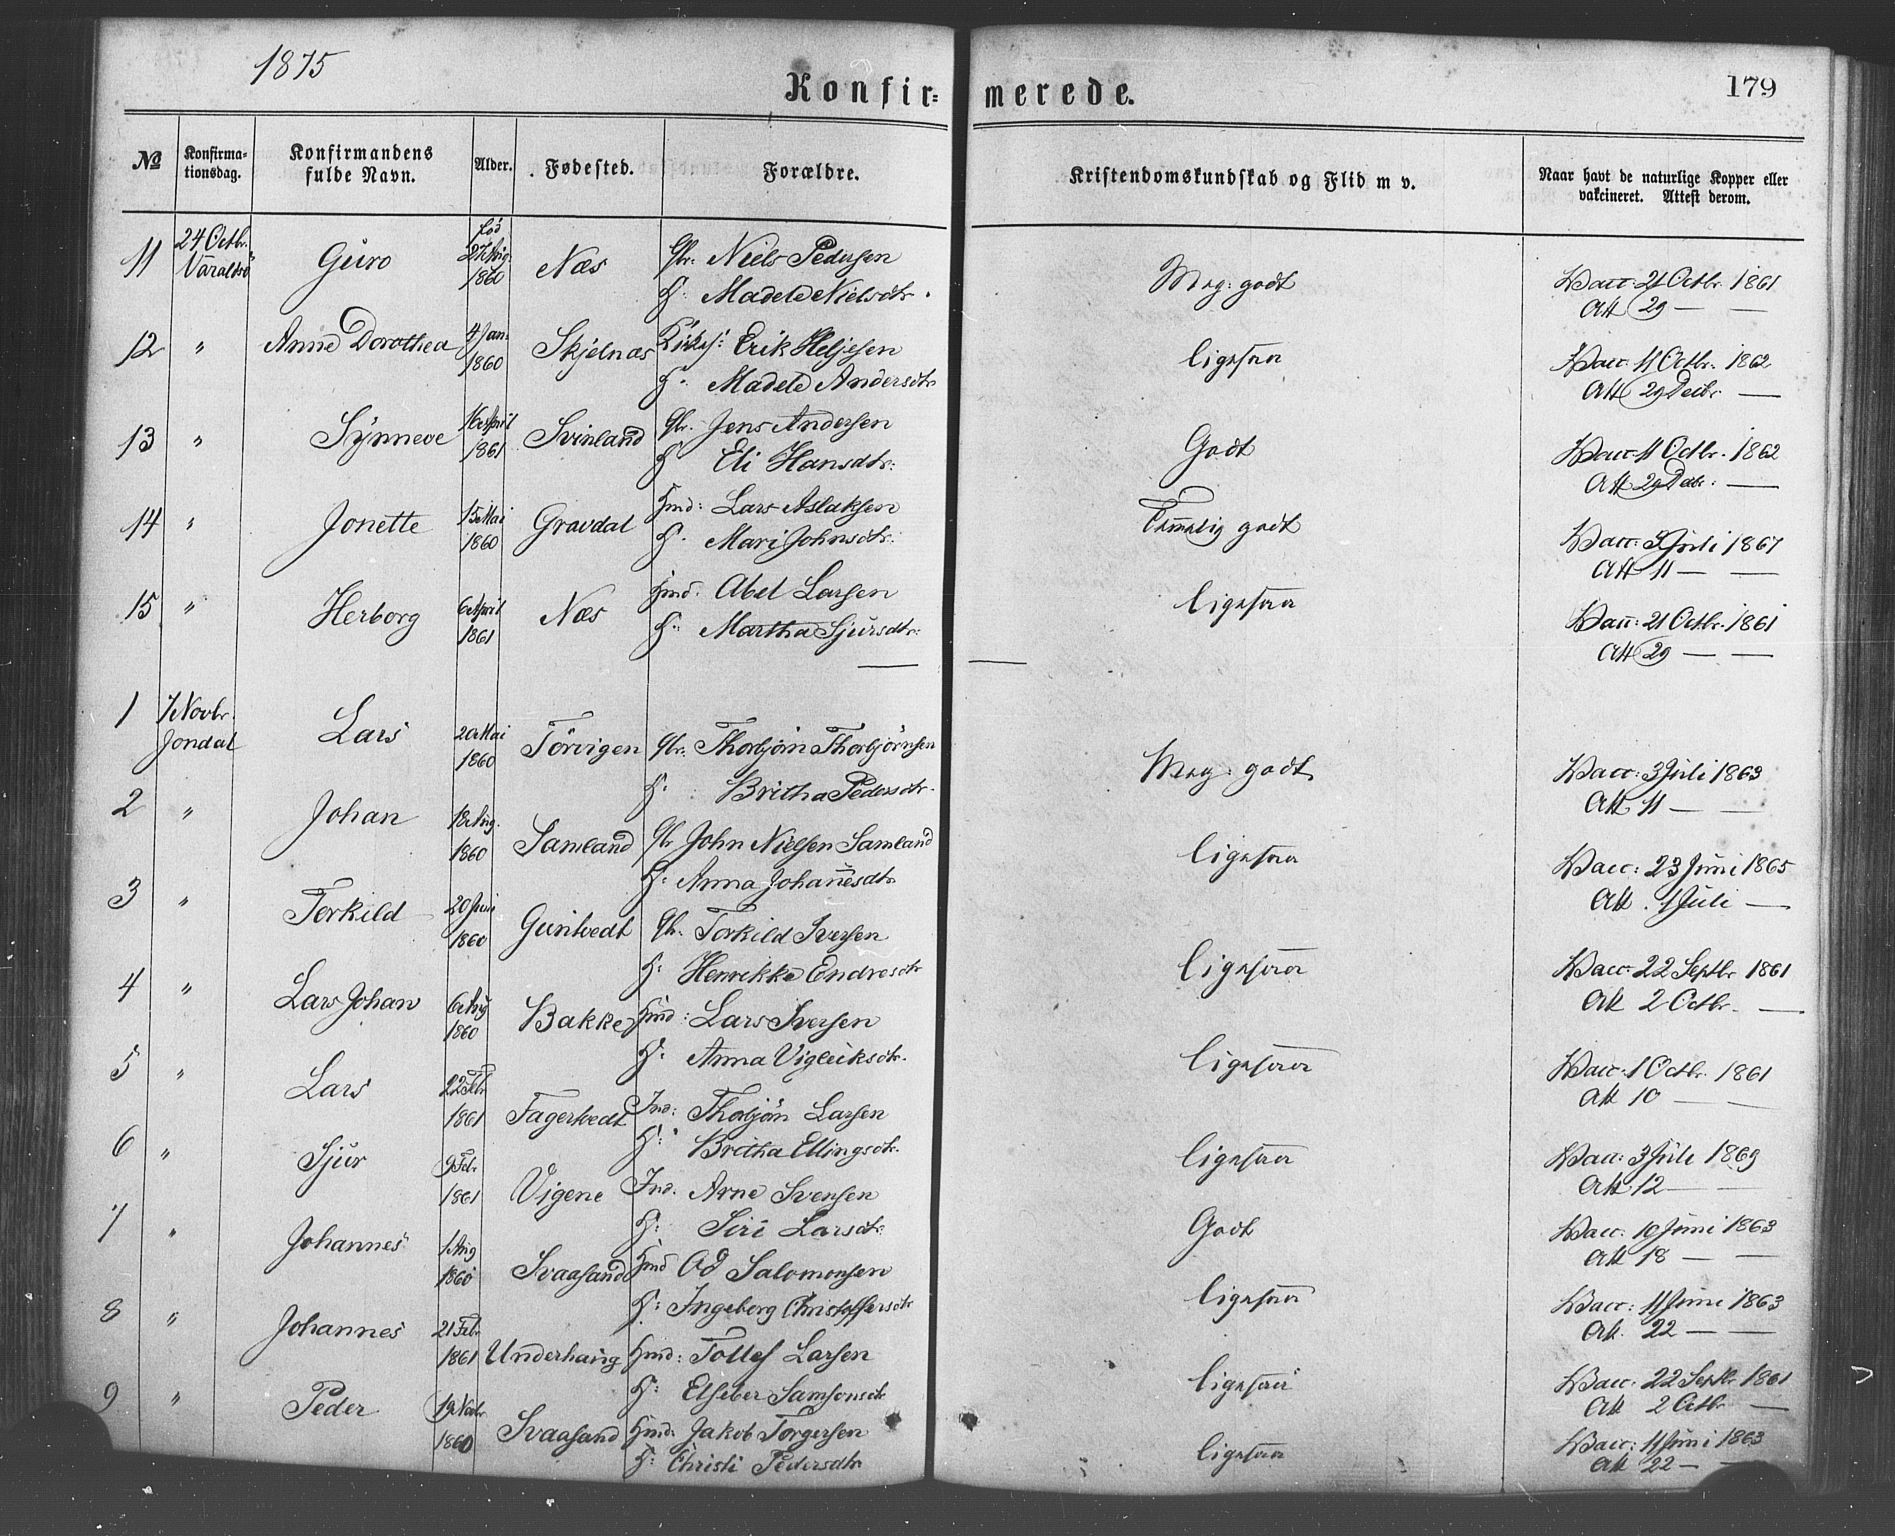 1875
Konfir= merede.
179
No
Konfirma-
tionsdag.
Konfirmandens
fulde Navn.
Alder.
Fødested.
Forældre.
Kristendomskundskab og Flid m v.
Naar havt de naturlige Kopper eller
vakcineret. Attest derom.
11 24 Octbr. Varaldsö Guro fød 27 Aug. 1860 Næs Gbr. Niels Pedersen Meg: godt Vacc: 21 Octbr. 1861
H: Madele Nielsdtr. Att 29 — —
12 " Anne Dorothea 4 Jan. 1860 Skjelnæs Erik Heljesen Ligesaa Vacc: 11 Octbr. 1862
H. Madele Andersdtr Att 29 Decbr. —
13 " Synneve 16 April 1861 Svinland Gbr. Jens Andersen Godt Vacc 11 Octbr. 1862
H Eli Hansdtr. Att 29 Decbr. —
14 " Jonette 15 Mai 1860 Gravdal Hmd: Lars Aslaksen Temmelig godt Vacc: 3 Juli 1867
H. Mari Johnsdtr. Att 11 — —
15 " Herborg 6 April 1861 Næs Hmd. Abel Larsen Ligesaa Vacc: 21 Octbr. 1861
H: Martha Sjursdtr. Att 29 — —
1 7 Novbr. Jondal Lars 20 Mai 1860 Törvigen Gbr. Thorbjörn Thorbjörnsen Meg: godt Vacc: 3 Juli 1863
H. Britha Pedersdtr. Att 11 — —
2 " Johan 18 Aug. 1860 Samland Gbr John Nielsen Samland Ligesaa Vacc: 23 Juni 1865
H. Anna Johannesdtr Att. 1 Juli —
3 " Torkild 20 Juni 1860 Guntvedt Gbr. Torkild Iversen Ligesaa Vacc: 22 Septbr 1861
H: Henrikke Endresdtr Att 2 Octbr. —
4 " Lars Johan 6 Aug 1860 Bakke Hmd: Lars Iversen Ligesaa Vacc: 1 Octbr. 1861
H: Anna Vigleiksdtr. Att 10 — —
5 " Lars 22 Febr 1861 Fagertvedt Ind: Thorbjörn Larsen Ligesaa Vacc: 3 Juli 1869
H: Britha Ellingsdtr. Att 12 — —
6 " Sjur 9 Febr 1861 Vigene Ind. Arne Svensen Godt Vacc: 10 Juni 1863
H: Siri Larsdtr. Att 18 — —
7 " Johannes 1 Aug 1860 Svaasand Hmd Od Salomonsen Ligesaa Vacc: 11 Juni 1863
H: Ingeborg Christoffersdtr Att. 22 — —
8 " Johannes 21 Febr 1861 Underhaug Hmd: Tollef Larsen Ligesaa Vacc: 22 Septr. 1861
H: Elseber Samsonsdtr Att 2 Octbr —
9 " Peder 19 Novbr 1860 Svaasand Hmd. Jakob Torgersen Ligesaa Vacc: 11 Juni 1863
H: Christi Pedersdtr Att 22 — —